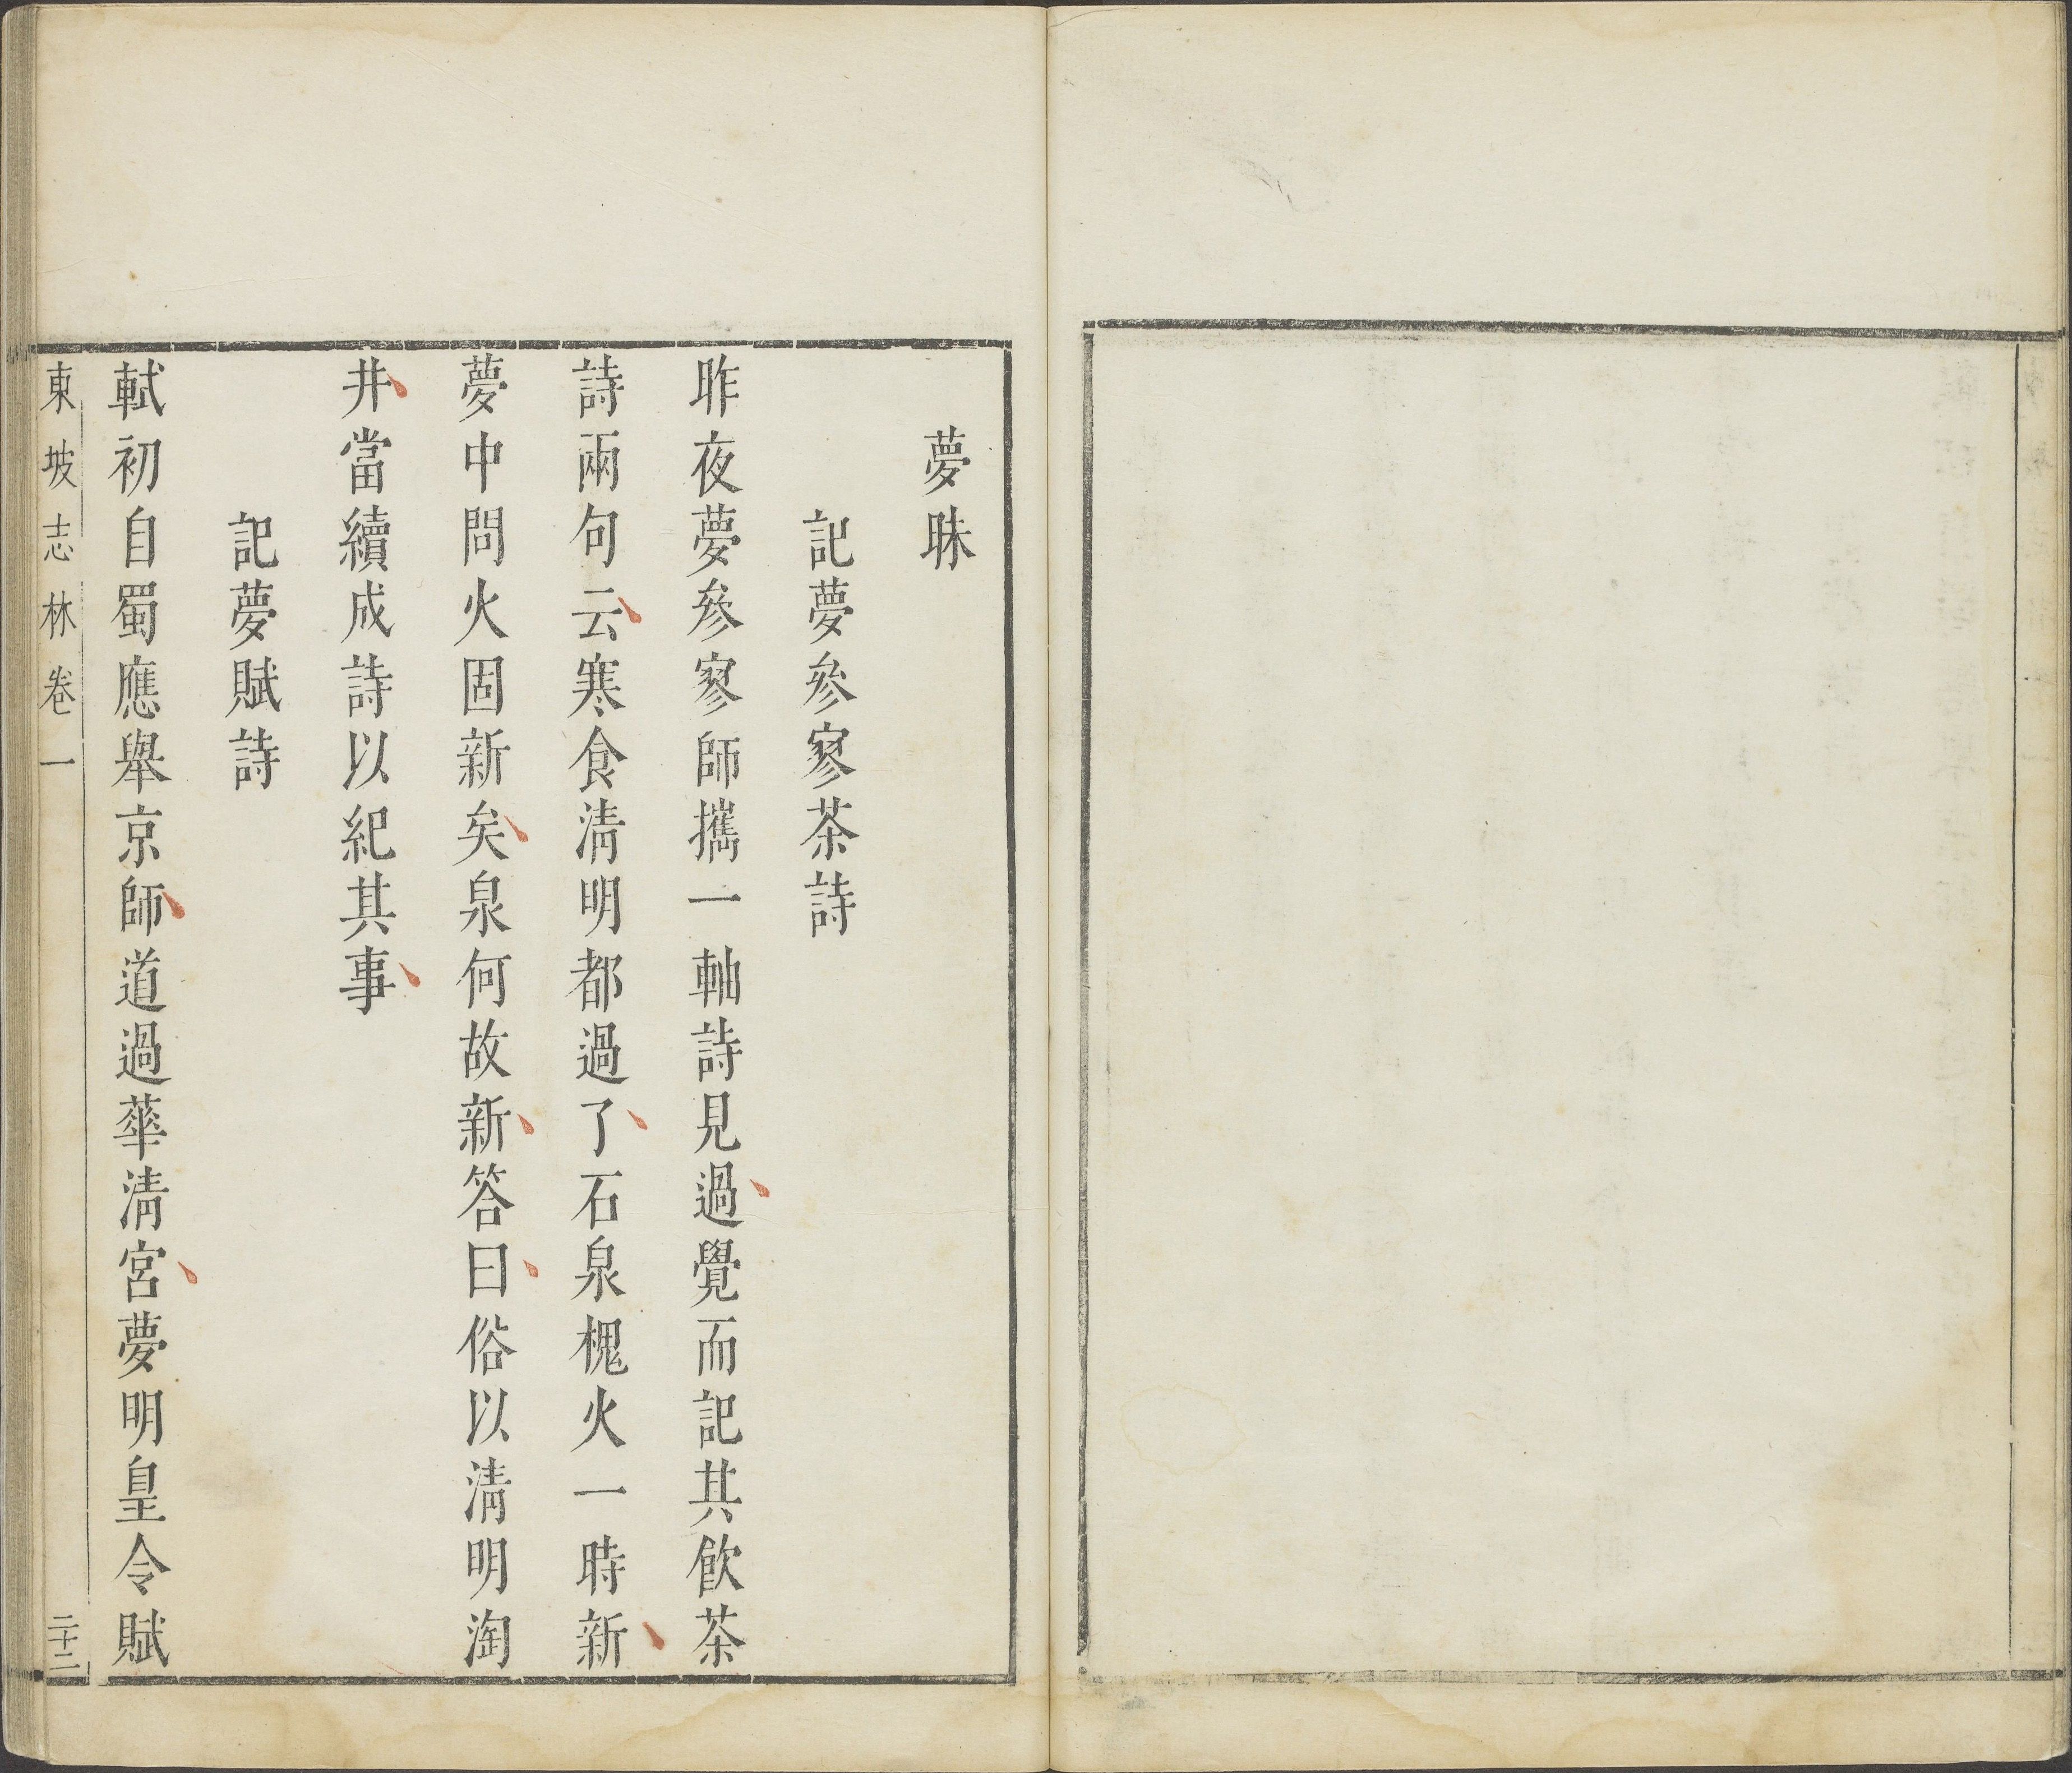 夢眛
記夢參寥茶詩
昨夜夢參寥師攜一軸詩見過覺而記其飲茶
詩兩句云寒食清明都過了石泉槐火一時新
夢中問火固新矣泉何故新答曰俗以清明淘
井當續成詩以紀其事
記夢賦詩
軾初自蜀應舉京師道過華清宮夢明皇令賦
東坡志林卷一
二十二